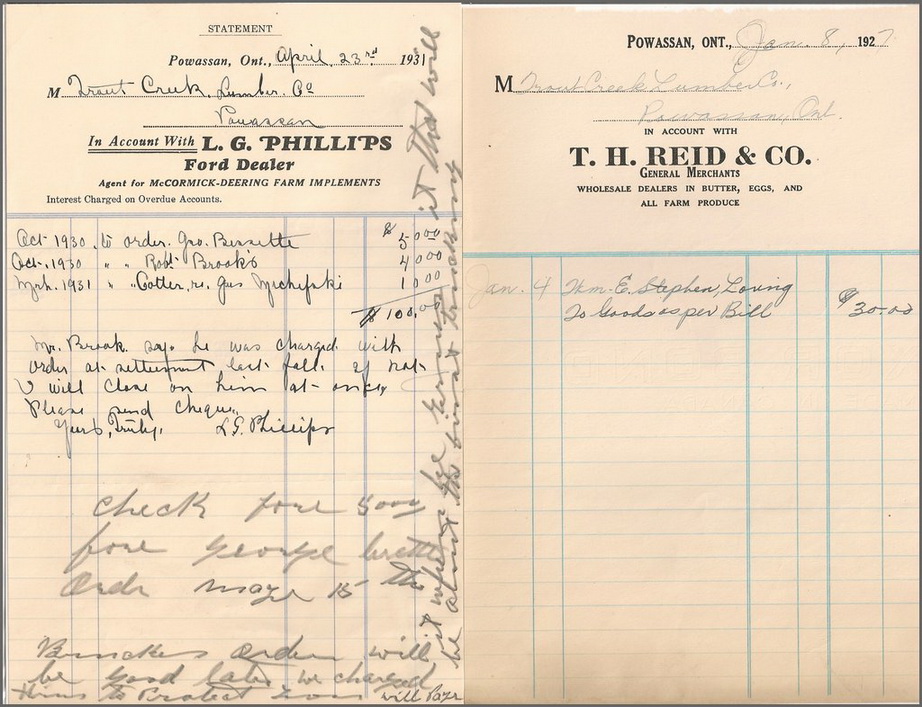 STATEMENT
Powassan, Ont., April 23rd 1931
M Trout Creek Lumber Co
Powassan
In Account With L. G. PHILLIPS
Ford Dealer
Agent for McCORMICK-DEERING FARM IMPLEMENTS
Interest Charged on Overdue Accounts.
Oct 1930 to order. Geo. Bessette $ 50 00
Oct. 1930 " " Robt Brooks 40 00
Mrh. 1931 " " Cotter, re. Gus 10 00
$ 100.00
Mr. Brook says he was charged with
order at settlement last fall. if not
I will close on him at once,
Please send cheque.
Yours Truly, L.G. Phillips
Check fore 5000
fore George
Order 15 the
Order will
be good later we charged
to Protect will Pay
POWASSAN, ONT., Jan. 8, 1927
M Trout Creek Lumber Co.,
Powassan, Ont.
IN ACCOUNT WITH
T. H. REID & CO.
GENERAL MERCHANTS
WHOLESALE DEALERS IN BUTTER, EGGS, AND
ALL FARM PRODUCE
Jan. 4 Wm. E. Stephen Loring
To Goods as per Bill $ 30.00